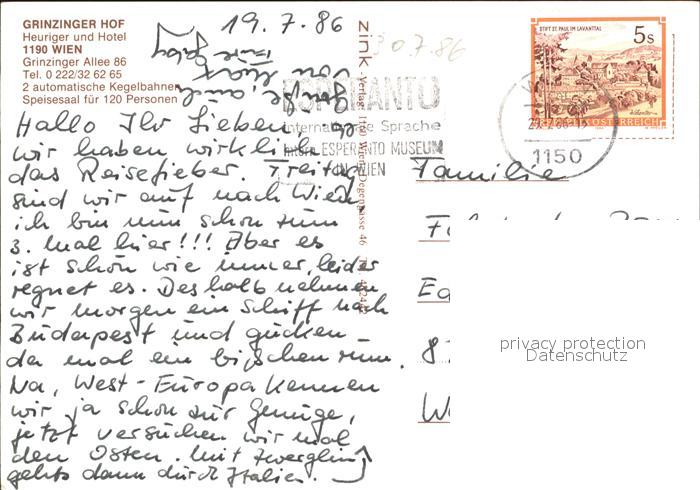 GRINZINGER HOF
Heuriger und Hotel
1190 WIEN
Grinzinger Allee 86
Tel. 0 222/32 62 65
2 automatische Kegelbahnen
Speisesaal für 120 Personen
19.7.86
Hallo Ihr Lieben,
wir haben wirklich
das Reisefieber. Freitag
sind wir auf nach Wien,
ich bin nun schon zum
3. Mal hier!!! Aber es
ist schön wie immer, leider
regnet es. Deshalb nehmen
wir morgen ein Schiff nach
Budapest und gucken
da mal ein bißchen rum.
Na, West-Europa kennen
wir ja schon zur Genüge,
jetzt versuchen wir mal
den Osten. Mit Zwerglin
gehts dann durch Italien.
Grüße auch
von Kurt
Eure Gaby
zink
Verlag, 1160 Wien, Degengasse 46
30.7.86
ESPERANTO
internationale Sprache
Intern. ESPERANTO MUSEUM
IN WIEN
1150
STIFT ST. PAUL IM LAVANTTAL
5s
REPUBLIK ÖSTERREICH
Familie
privacy protection
Datenschutz